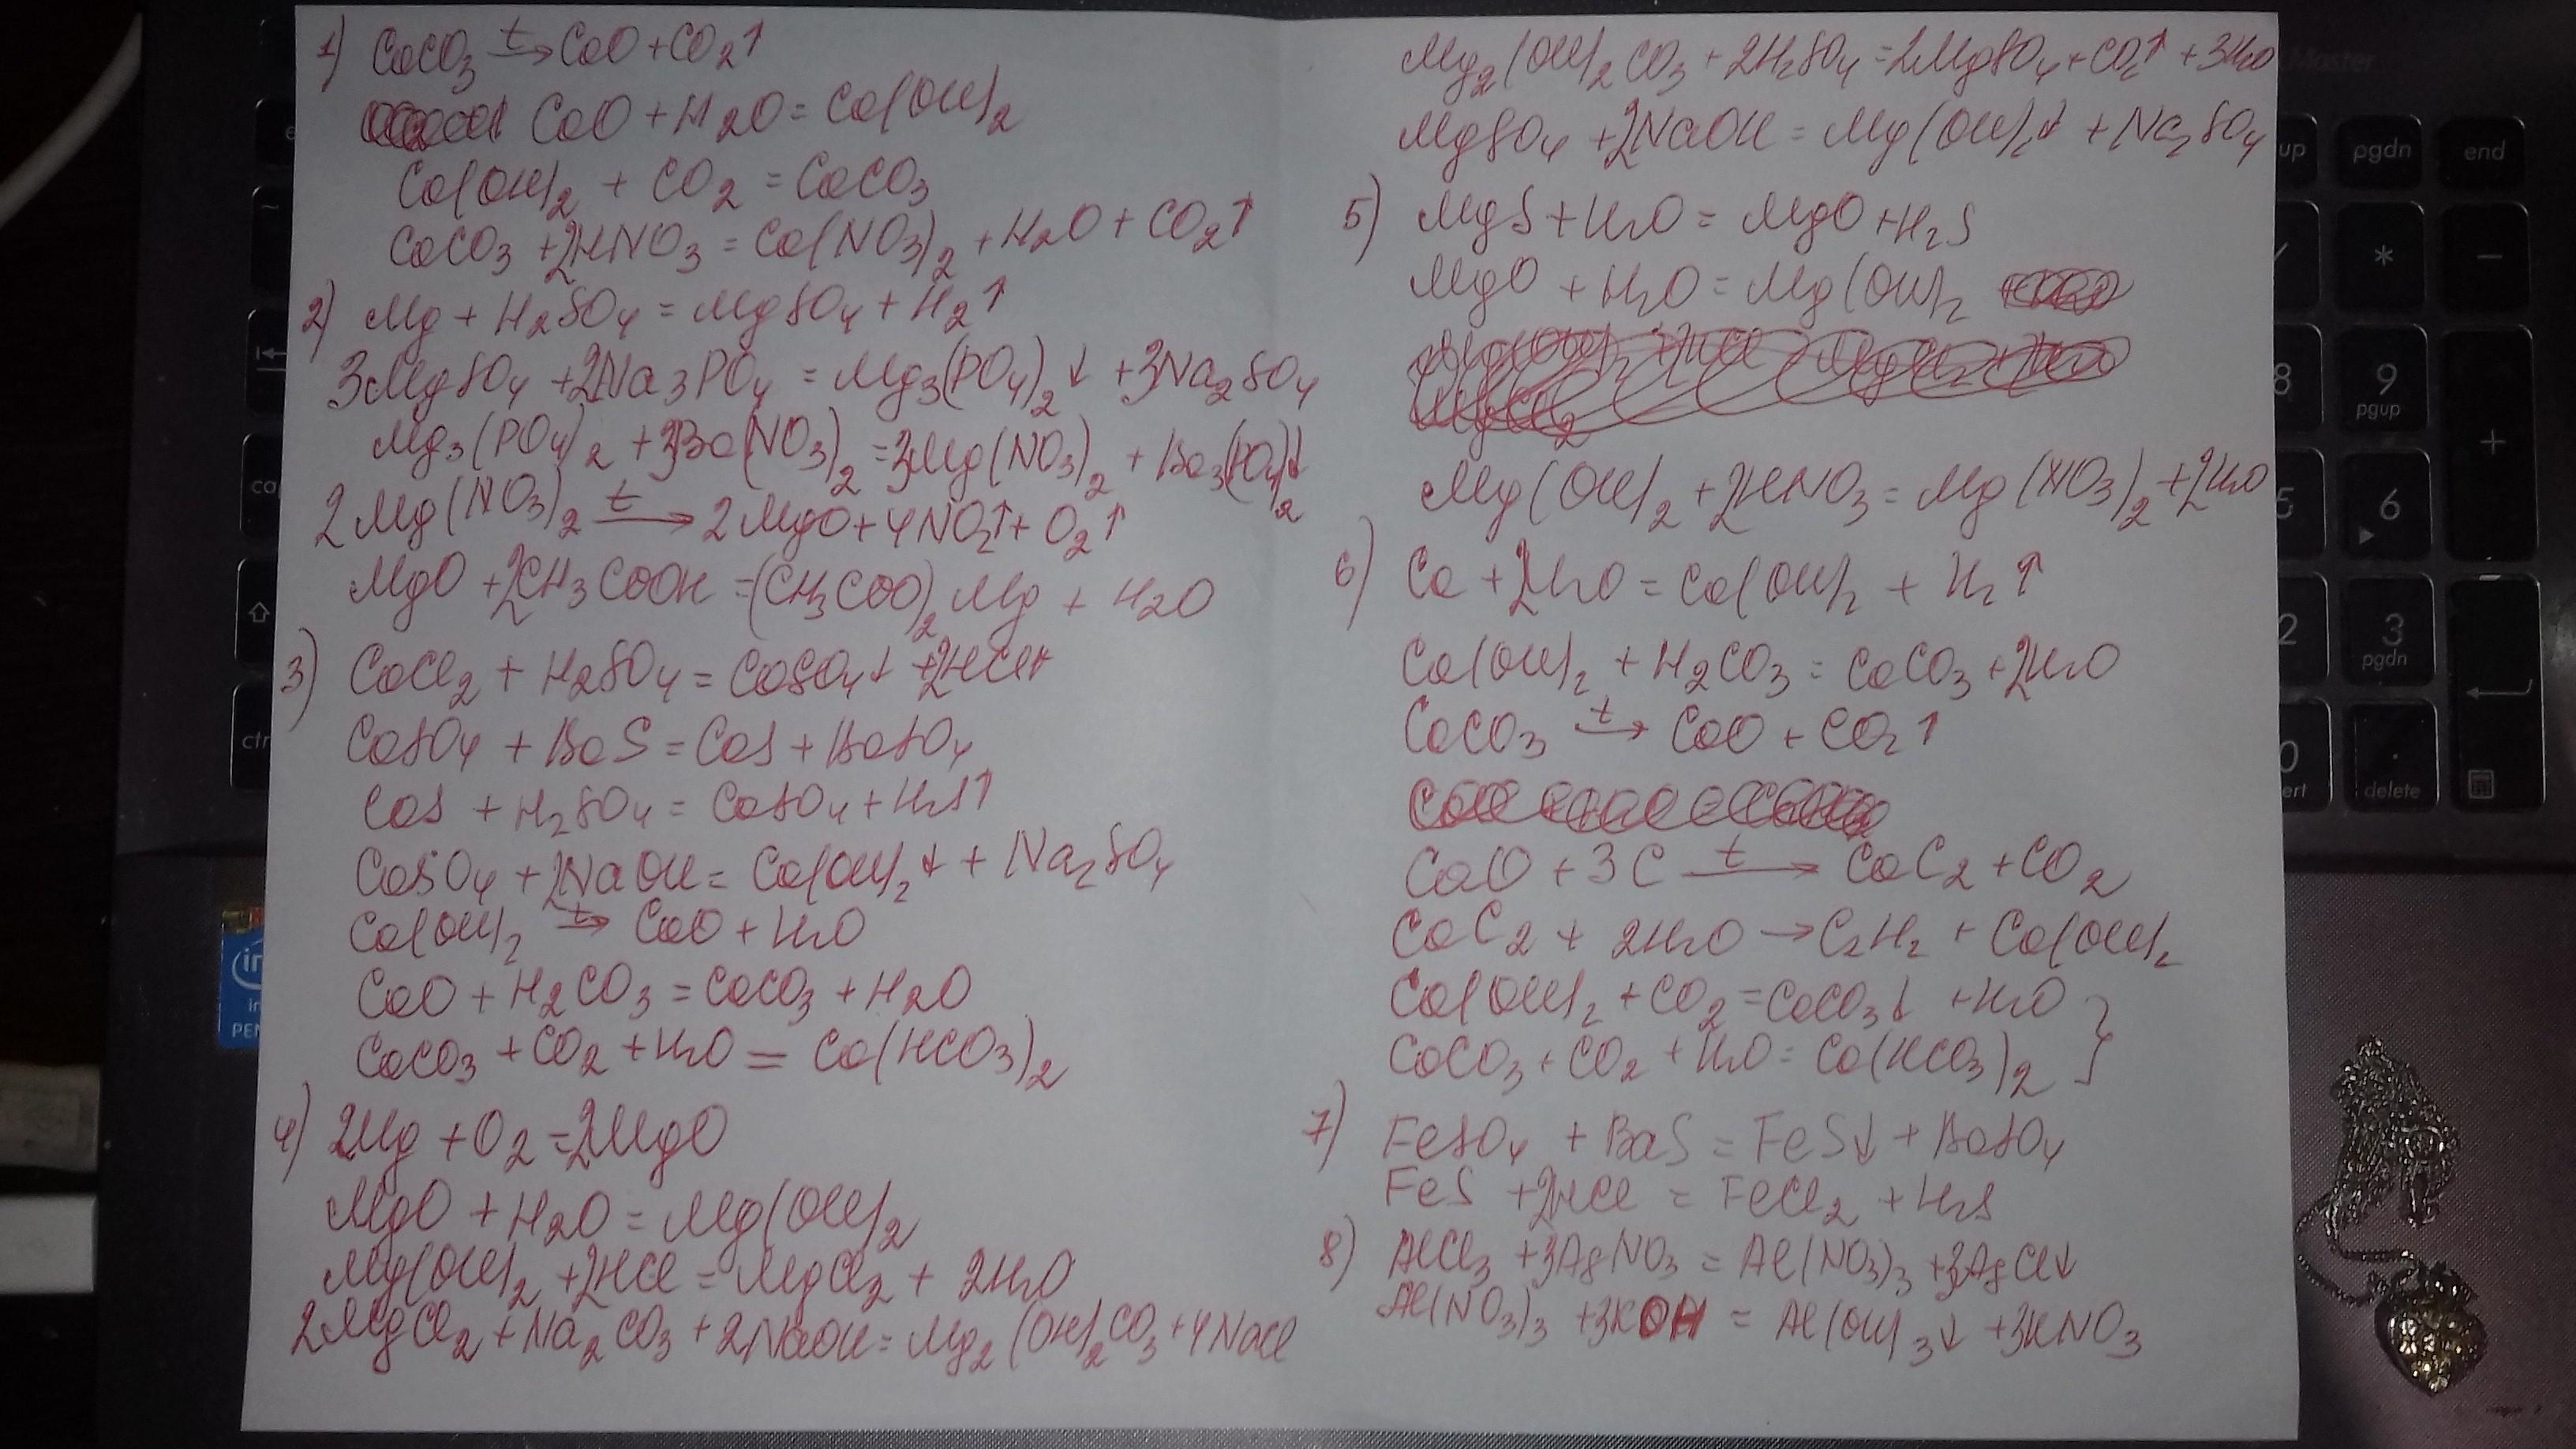 1) CaCO3 t→ CaO + CO2↑
CaO + H2O = Ca(OH)2
Ca(OH)2 + CO2 = CaCO3
CaCO3 + 2HNO3 = Ca(NO3)2 + H2O + CO2↑
2) Mg + H2SO4 = MgSO4 + H2↑
3MgSO4 + 2Na3PO4 = Mg3(PO4)2↓ + 3Na2SO4
Mg3(PO4)2 + 3Ba(NO3)2 = 3Mg(NO3)2 + Ba3(PO4)2↓
2Mg(NO3)2 t→ 2MgO + 4NO2↑ + O2↑
MgO + 2CH3COOH = (CH3COO)2Mg + H2O
3) CaCl2 + H2SO4 = CaSO4↓ + 2HCl↑
CaSO4 + BaS = CaS + BaSO4
CaS + H2SO4 = CaSO4 + H2S↑
CaSO4 + 2NaOH = Ca(OH)2↓ + Na2SO4
Ca(OH)2 t→ CaO + H2O
CaO + H2CO3 = CaCO3 + H2O
CaCO3 + CO2 + H2O = Ca(HCO3)2
4) 2Mg + O2 = 2MgO
MgO + H2O = Mg(OH)2
Mg(OH)2 + 2HCl = MgCl2 + 2H2O
2MgCl2 + Na2CO3 + 2NaOH = Mg2(OH)2CO3 + 4NaCl
Mg2(OH)2CO3 + 2H2SO4 = 2MgSO4 + CO2↑ + 3H2O
MgSO4 + 2NaOH = Mg(OH)2↓ + Na2SO4
5) MgS + H2O = MgO + H2S
MgO + H2O = Mg(OH)2
Mg(OH)2 + 2HNO3 = Mg(NO3)2 + 2H2O
6) Ca + 2H2O = Ca(OH)2 + H2↑
Ca(OH)2 + H2CO3 = CaCO3 + 2H2O
CaCO3 t→ CaO + CO2↑
CaO + 3C t→ CaC2 + CO2
CaC2 + 2H2O → C2H2 + Ca(OH)2
Ca(OH)2 + CO2 = CaCO3↓ + H2O }
CaCO3 + CO2 + H2O = Ca(HCO3)2
7) FeSO4 + BaS = FeS↓ + BaSO4
FeS + 2HCl = FeCl2 + H2S
8) AlCl3 + 3AgNO3 = Al(NO3)3 + 3AgCl↓
Al(NO3)3 + 3KOH = Al(OH)3↓ + 3KNO3
pgdn
end
*
9
pgup
+
6
3
pgdn
delete